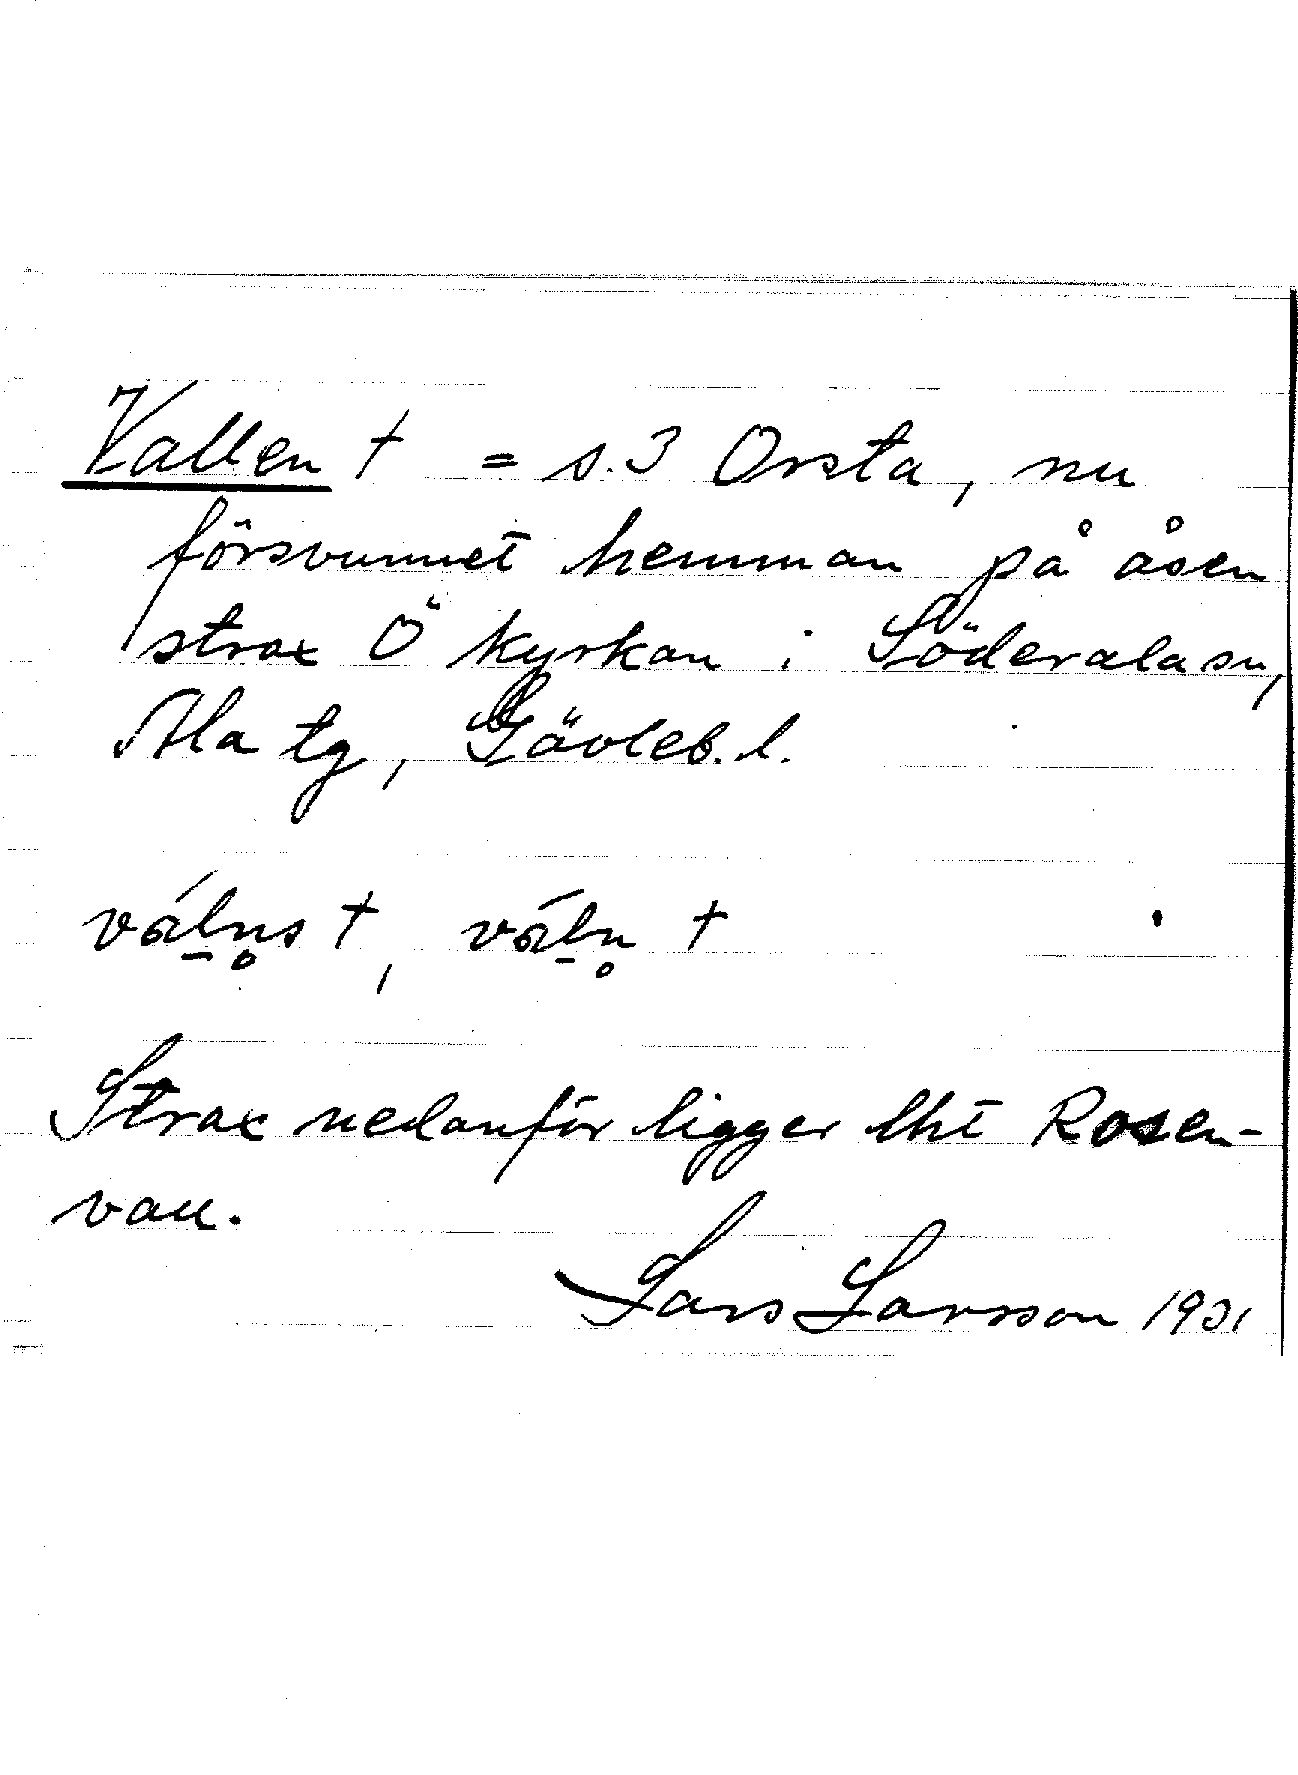 Vallen † = s. 3 Orsta, nu
försvunnet hemman på åsen
strax Ö kyrkan i Söderala sn,
Ala tg, Gävleb. l.
†, †
Strax nedanför ligger lht Rosen-
vall.
Lars Larsson 1931